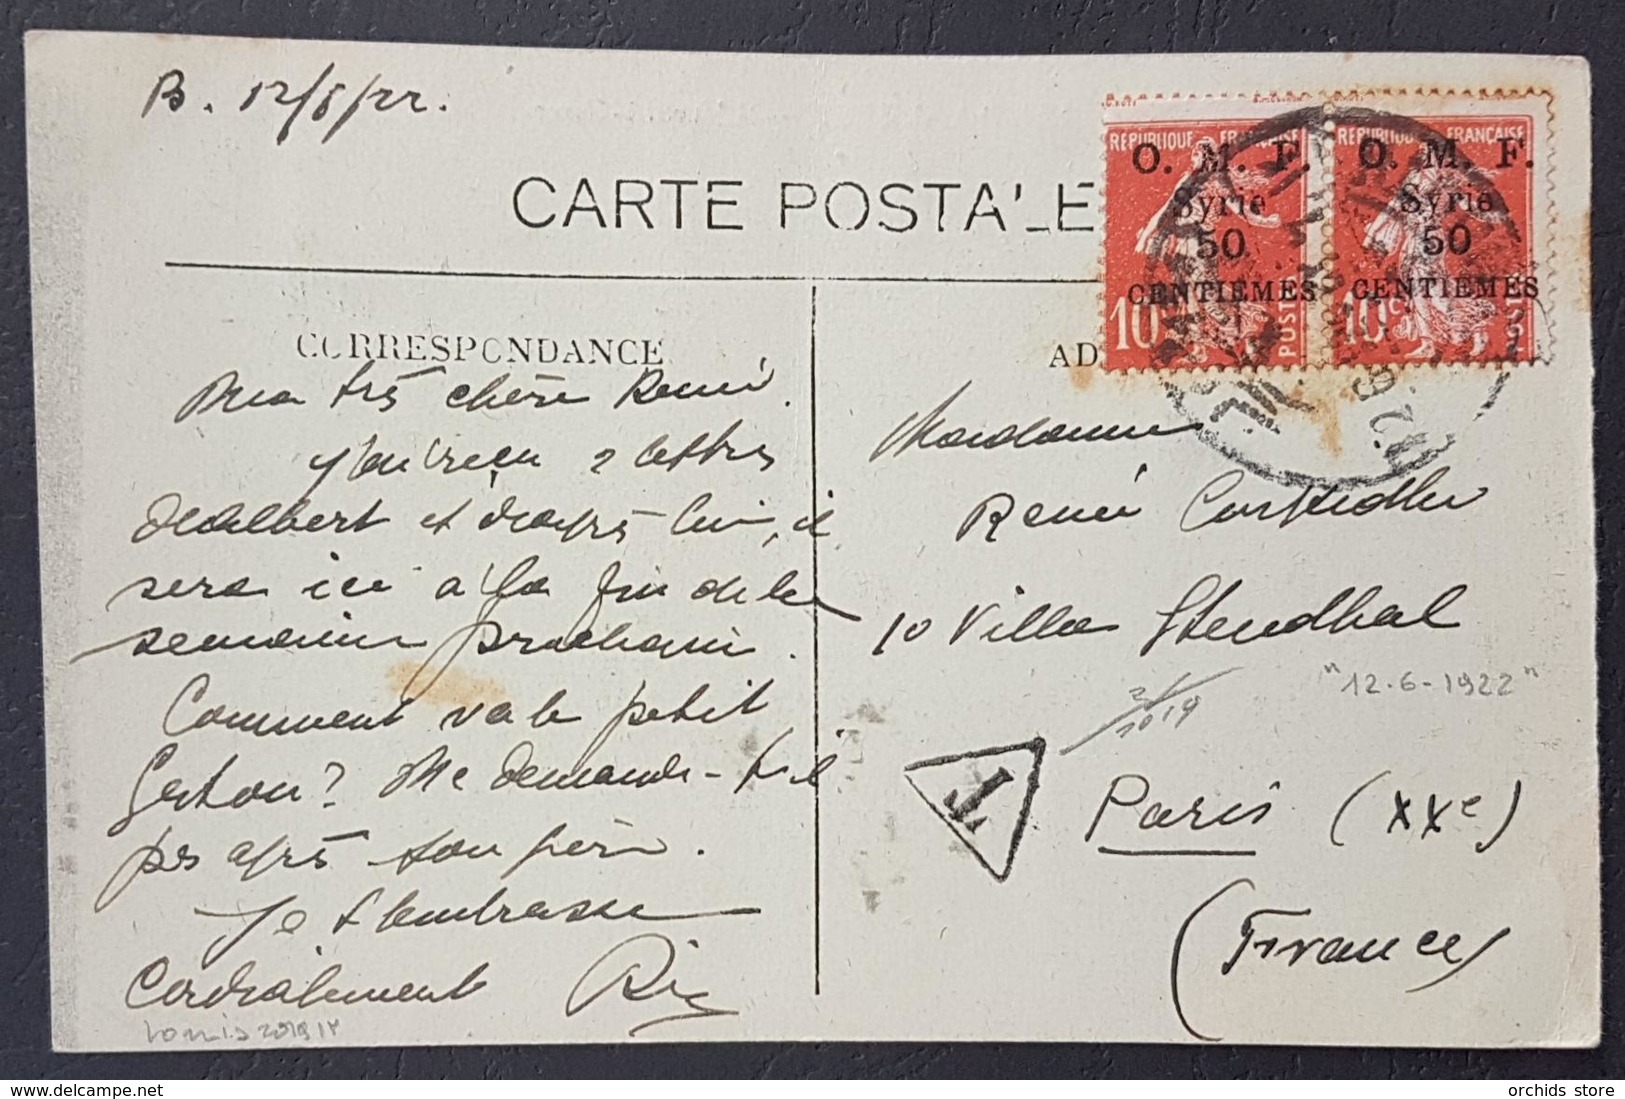 B. 12/6/22.
CARTE POSTALE
REPUBLIQUE FRANÇAISE
O. M. F.
Syrie
50
CENTIEMES
10c
POSTES
REPUBLIQUE FRANÇAISE
O. M. F.
Syrie
50
CENTIEMES
10c
POSTES
CORRESPONDANCE
AD
Ma très chère René.
J'ai reçu 2 lettres
d'Adalbert et d'après lui, il
sera ici à la fin de la
semaine prochaine.
Comment va le petit
Gaston? Me demande-t-il
pas après son père.
Je t'embrasse
Cordialement
Madame
René
10 Villa Stendhal
"12.6-1922"
T
Paris (XXe)
(France)
delcampe.net
orchids store